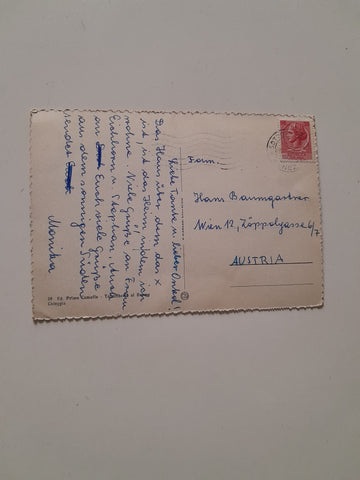 Liebe Tante u. lieber Onkel!
Das Haus über dem das x
ist ist das Heim, indem ich
wohne. Viele Grüße an
Eichhorn u. Stephan. Auch
an Euch viele Grüße
aus dem sonnigen Süden
sendet
Monika
Fam.,
Hans Baumgartner
Wien 12,
AUSTRIA
Chioggia